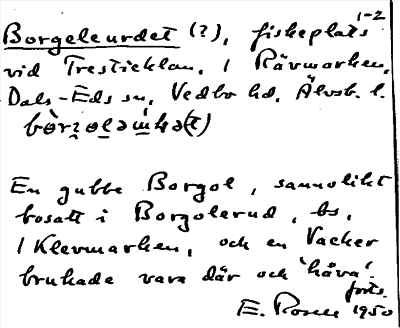 1-2
Borgeleurdet (?), fiskeplats
vid Tresticklan, i Rävmarken,
Dals-Eds sn, Vedbo hd, Älvsb. l.
En gubbe Borgol, sannolikt
bosatt i Borgolerud, bs,
i Klevmarken, och en Vacker
brukade vara där och 'håva'.
forts.
E. Rosell 1950